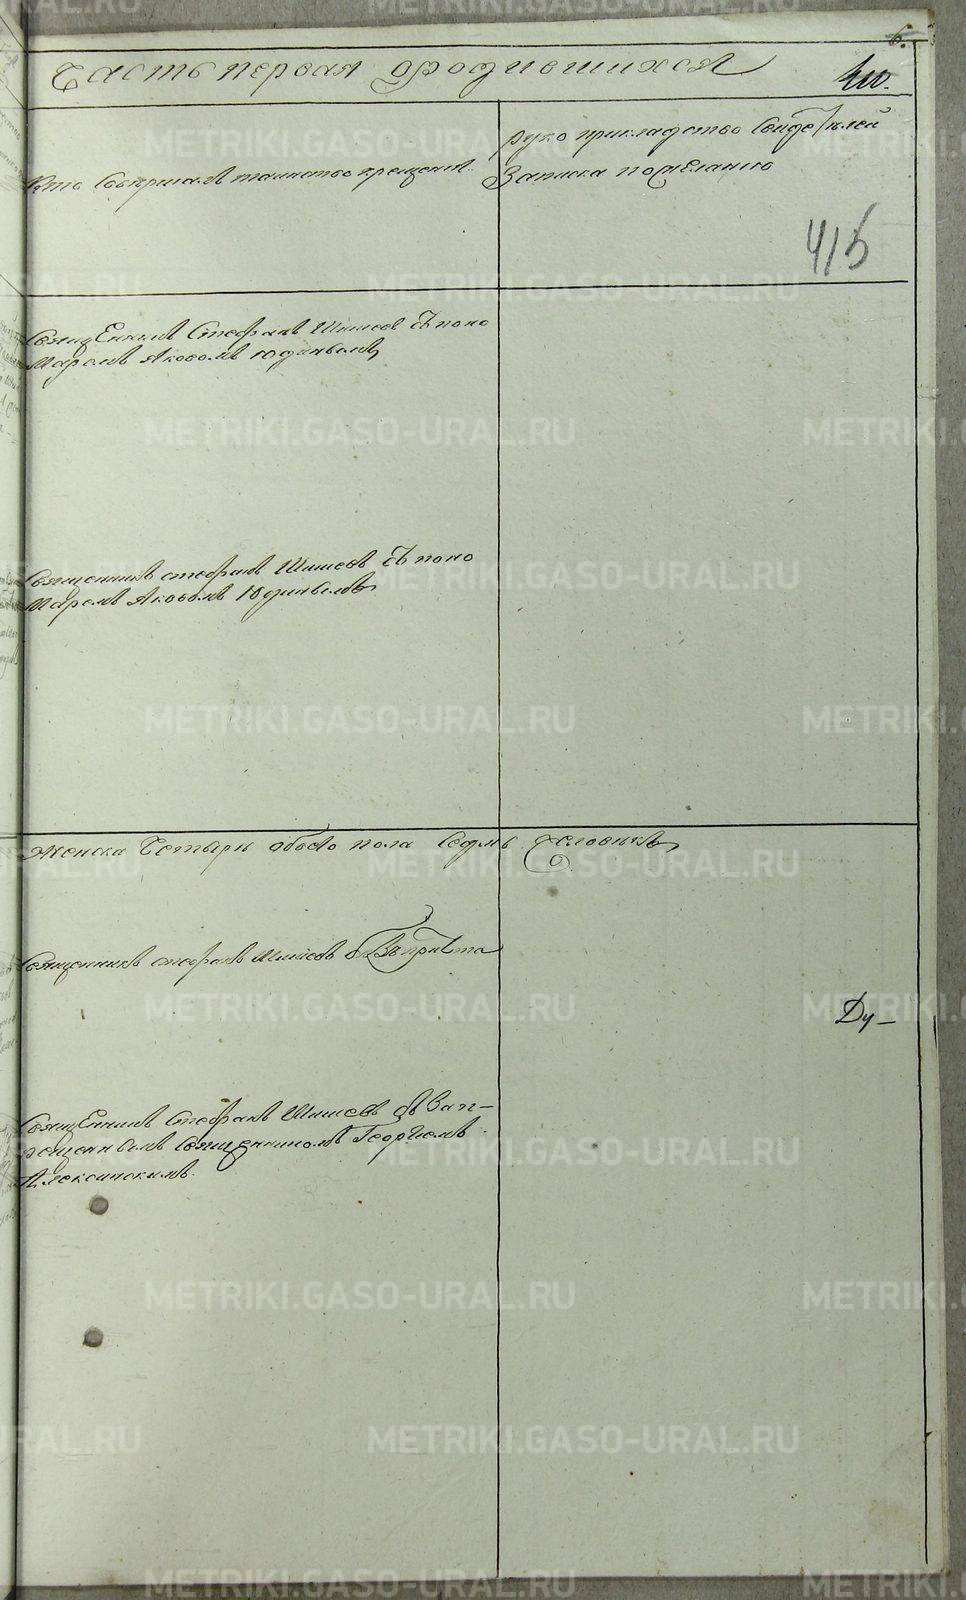 6.
Часть первая ородившихся
410.
Кто совершалъ таинство крещенія
руко прикладство свидетѣлей
Записка пожеланию
415
Священникъ Стефанъ Шишевъ съ поно
Маремъ Яковомъ Юдинымъ
Священникъ Стефанъ Шишевъ съ поно
Маремъ Яковомъ Юдинымъ
Женска Четыри обоего пола Седмь человѣкъ
Священникъ Стефанъ Шишевъ безъ причта
Ду-
Священникъ Стефанъ Шишевъ съ Зап-
рещеннымъ священникомъ Георгіемъ
Алексинскимъ.
METRIKI.GASO-URAL.RU